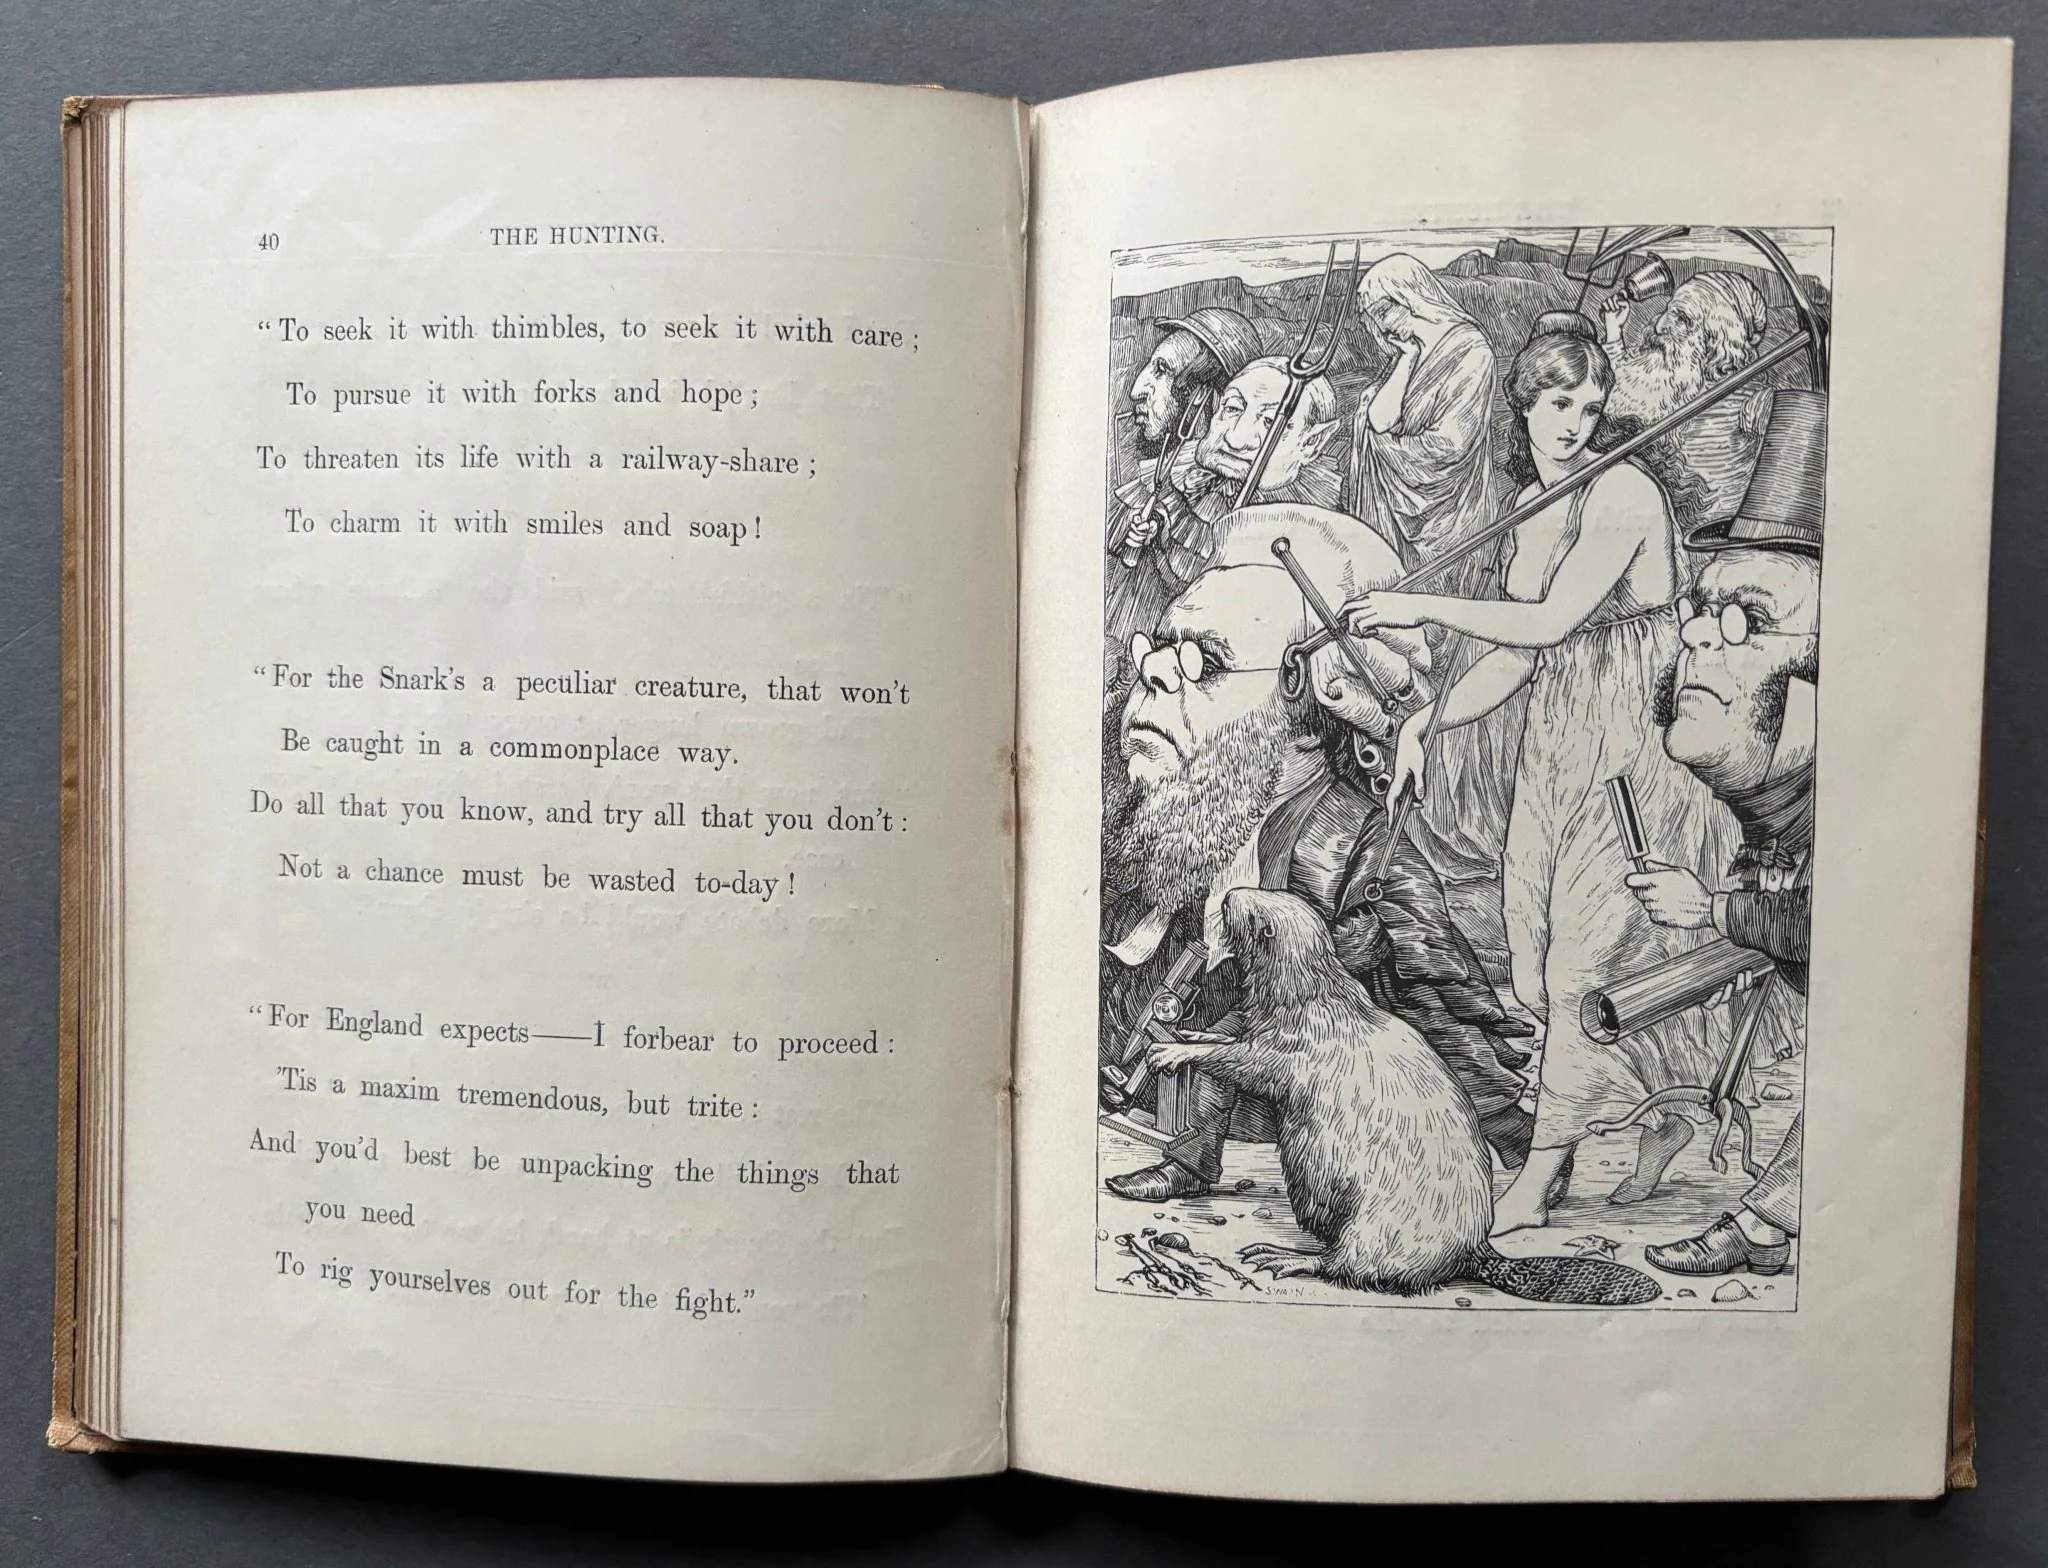 40
THE HUNTING.
“To seek it with thimbles, to seek it with care ;
To pursue it with forks and hope ;
To threaten its life with a railway-share ;
To charm it with smiles and soap !
“For the Snark’s a peculiar creature, that won’t
Be caught in a commonplace way.
Do all that you know, and try all that you don’t :
Not a chance must be wasted to-day !
“For England expects——I forbear to proceed :
’Tis a maxim tremendous, but trite :
And you’d best be unpacking the things that
you need
To rig yourselves out for the fight.”
SWAIN